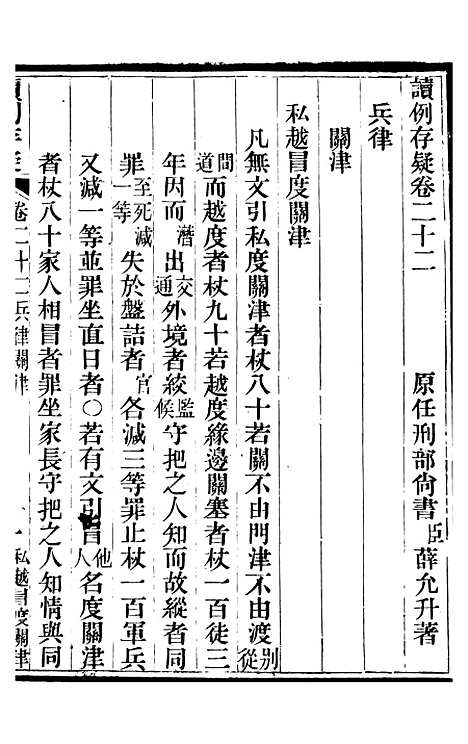 讀例存疑卷二十二 原任刑部尚書臣薛允升著
兵律
關津
私越冒度關津
凡無文引私度關津者杖八十若關不由門津不由渡別從
間道而越度者杖九十若越度緣邊關塞者杖一百徒三
年因而潛出交通外境者絞監候守把之人知而故縱者同
罪至死減一等失於盤詰者官各減三等罪止杖一百軍兵
又減一等並罪坐直日者〇若有文引冒他人名度關津
者杖八十家人相冒者罪坐家長守把之人知情與同
卷二十二兵律關津 一 私越冒度關津